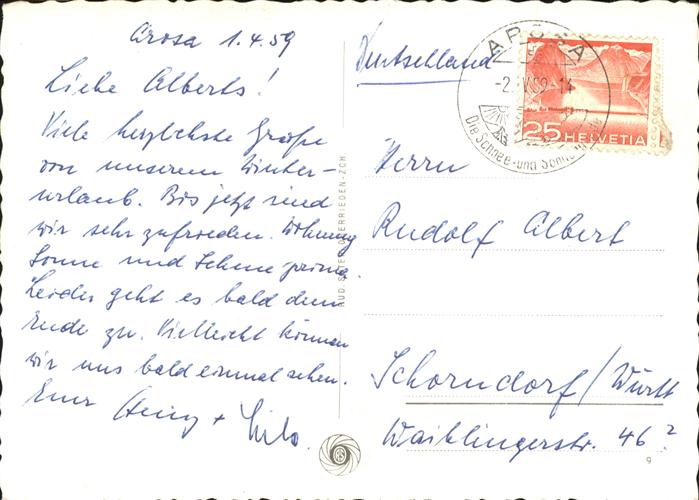 Arosa 1.4.59
Liebe Alberts!
Viele herzlichste Grüße
von unserem Winter-
urlaub. Bis jetzt sind
wir sehr zufrieden. Wohnung
Sonne und Schnee prima.
Leider geht es bald dem
Ende zu. Vielleicht können
wir uns bald einmal sehen.
Eure Heinz +
Deutschland
AROSA
Die Schnee- und
25 HELVETIA
Herrn
Rudolf Albert
Schorndorf/Württ
Waiblingerstr. 46?
RUD. SUTER, OBERRIEDEN-ZCH
9